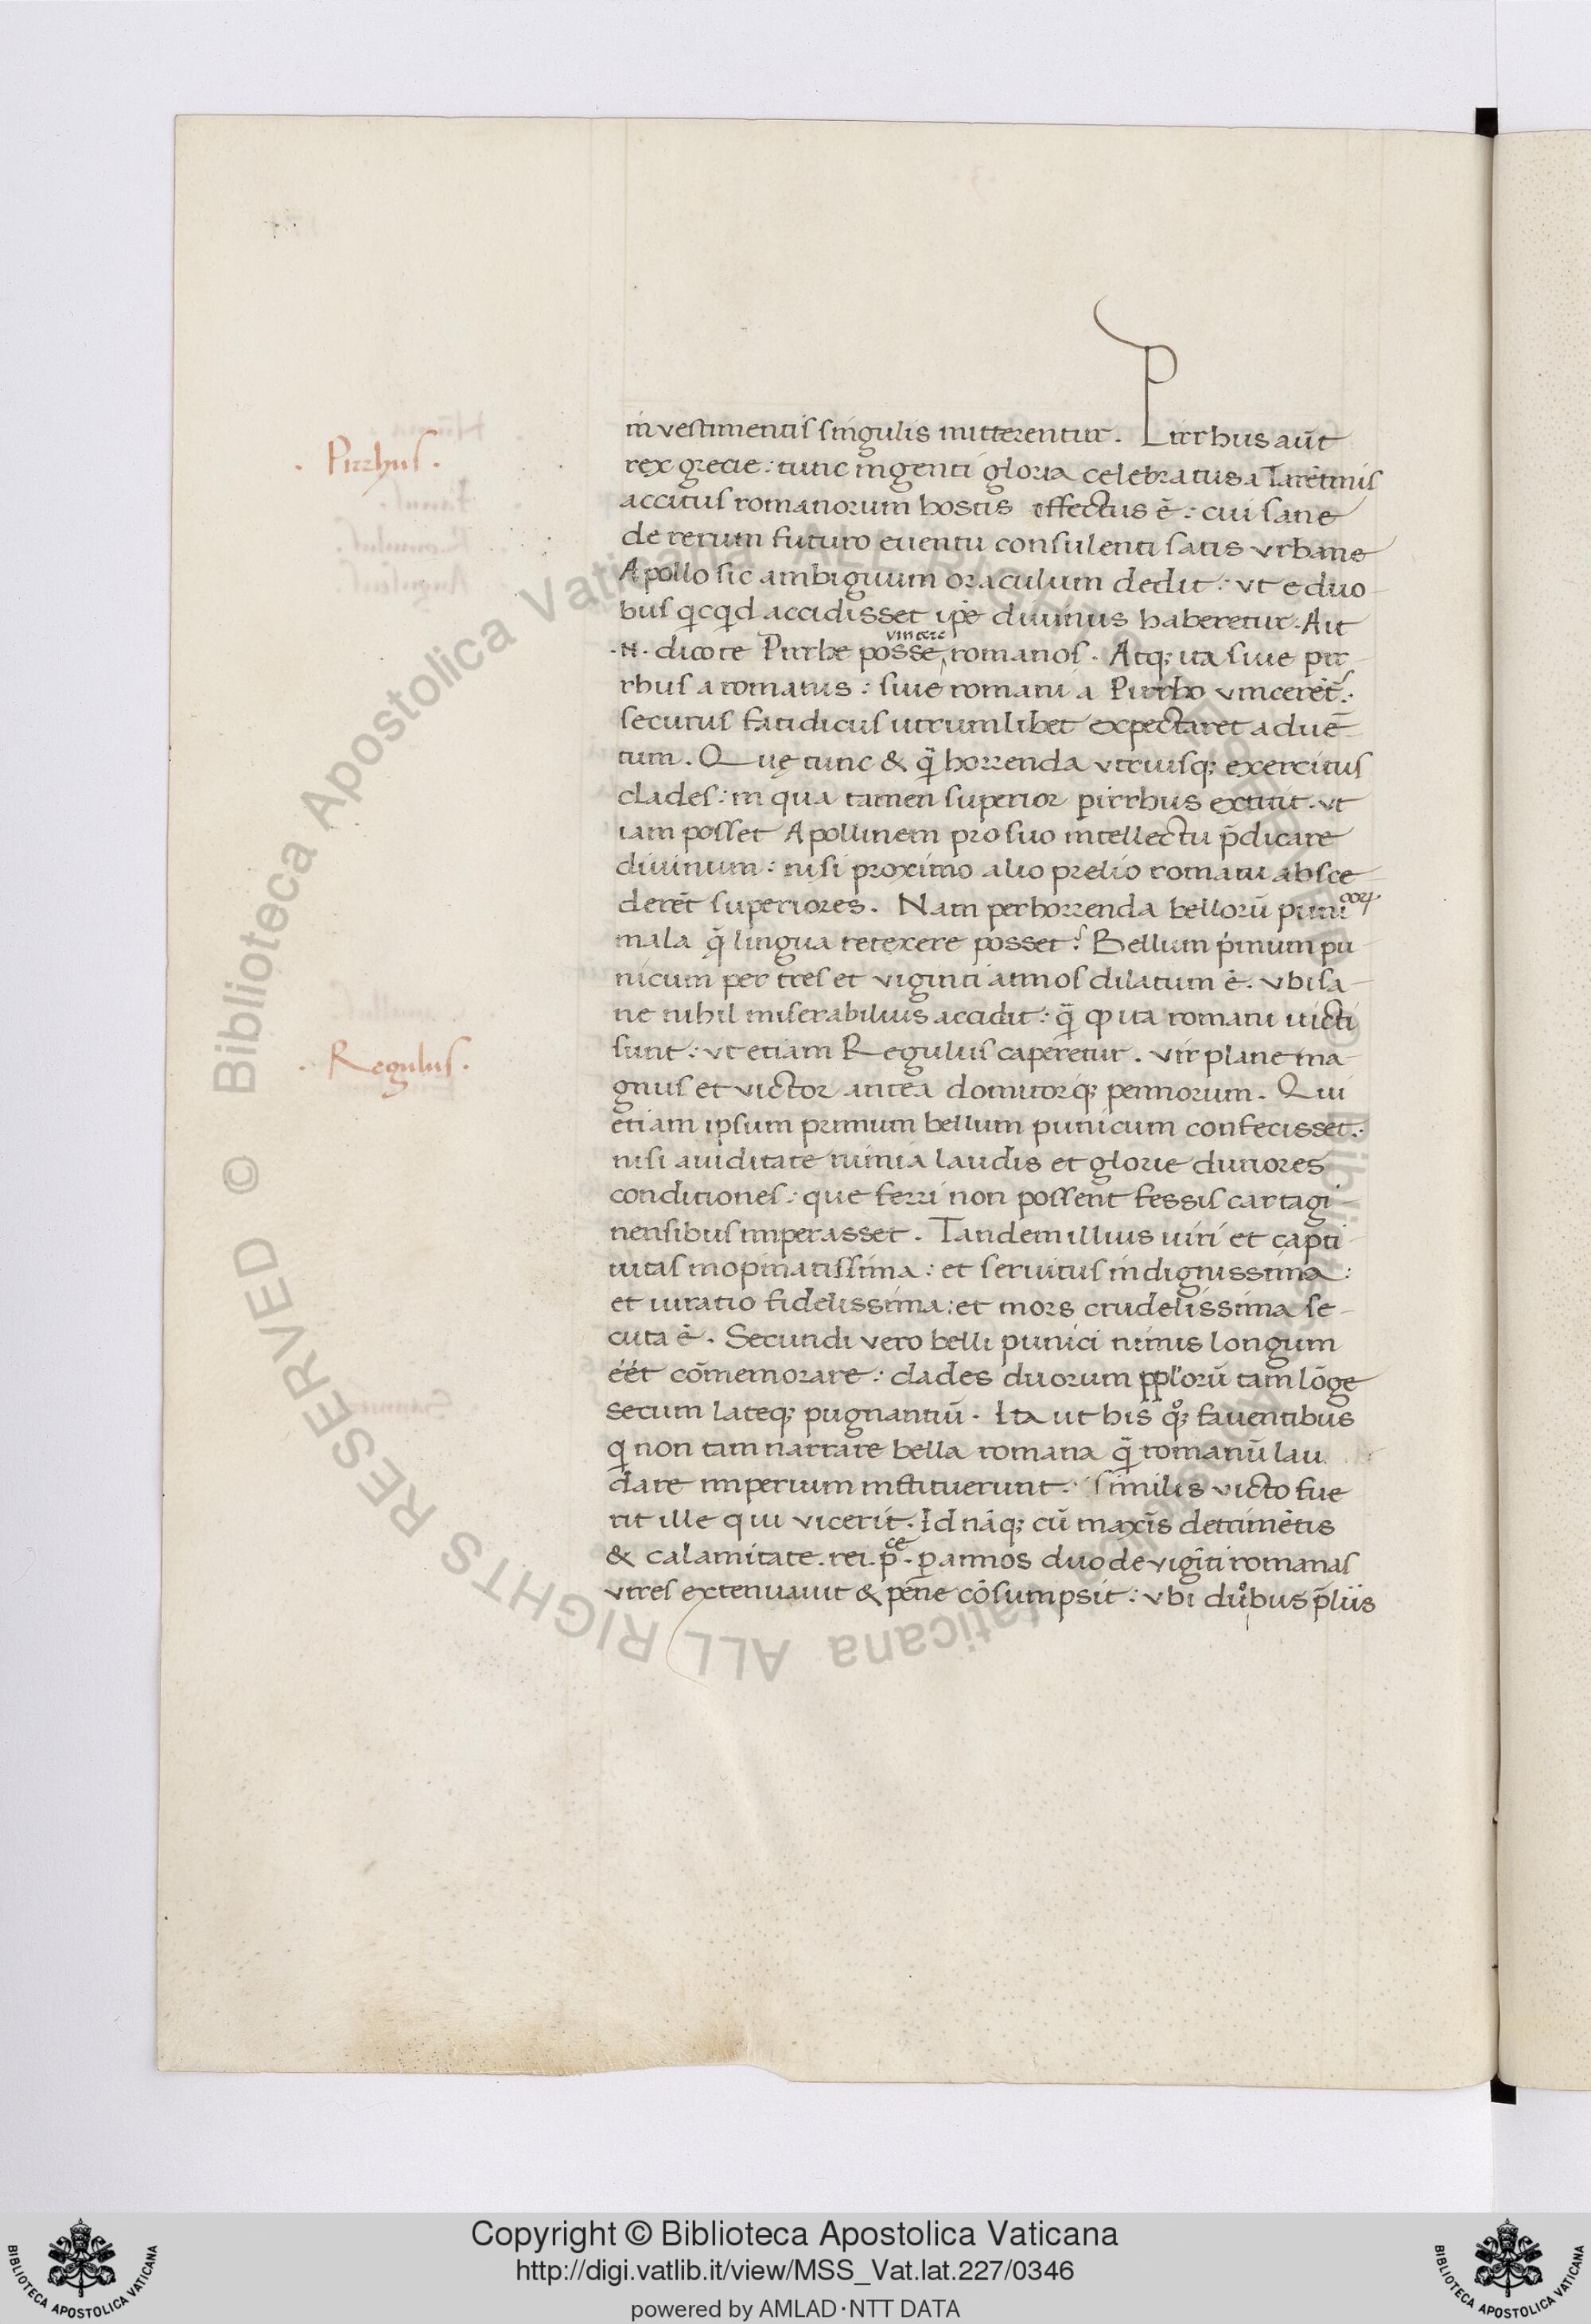 . Pirrhus .
in vestimentis singulis mitterentur. Pirrhus aūt
rex grecie: tunc ingenti gloria celebratus a Tarētinis
accitus romanorum hostis effectus ē: cui sane
de rerum futuro euentu consulenti satis vrbane
Apollo sic ambiguum oraculum dedit: vt e duo
bus qicqid accidisset ipē diuinus haberetur. Ait
.N. dico te Pirrhe posse vincere romanos. Atq; ita siue pir
rhus a romanis: siue romani a Pirrho vincerēt.
securus fatidicus utrumlibet expectaret aduē
tum. Quę tunc & q̄ horrenda vtriusq; exercitus
clades: in qua tamen superior pirrhus extitit. vt
iam posset Apollinem pro suo intellectu p̄dicare
diuinum: nisi proximo alio prelio romani absce
derēt superiores. Nam perhorrenda bellorū punicoꝝ
mala q̄ lingua retexere posset? Bellum primum pu
nicum per tres et viginti annos dilatum ē. vbi sa
ne nihil miserabilius accidit: q̄ ꝙ ita romani uicti
sunt: vt etiam Regulus caperetur. vir plane ma
. Regulus .
gnus et victor antea domitorq; pennorum. Qui
etiam ipsum primum bellum punicum confecisset.
nisi auiditate nimia laudis et glorie duriores
conditiones: que ferri non possent fessis cartagi
nensibus imperasset. Tandem illius uiri et capti
uitas inopinatissima: et seruitus indignissima:
et iuratio fidelissima: et mors crudelissima se
cuta ē. Secundi vero belli punici nimis longum
éét cōmemorare: clades duorum pplorū tam lōge
secum lateq; pugnantiū. Ita ut his qoq; fauentibus
q non tam narrare bella romana q̄ romanū lau
dare imperium instituerunt. similis victo fue
rit ille qui vicerit. Id nāq; cū maxīs detrimētis
& calamitate .rei. p̄ce. ꝑ annos duo de vigīti romanas
vires extenuauit & pēne cōsumpsit: vbi duobus p̄liis
Copyright © Biblioteca Apostolica Vaticana
http://digi.vatlib.it/view/MSS_Vat.lat.227/0346
powered by AMLAD·NTT DATA
BIBLIOTECA APOSTOLICA VATICANA
BIBLIOTECA APOSTOLICA VATICANA
Biblioteca Apostolica Vaticana ALL RIGHTS RESERVED ©